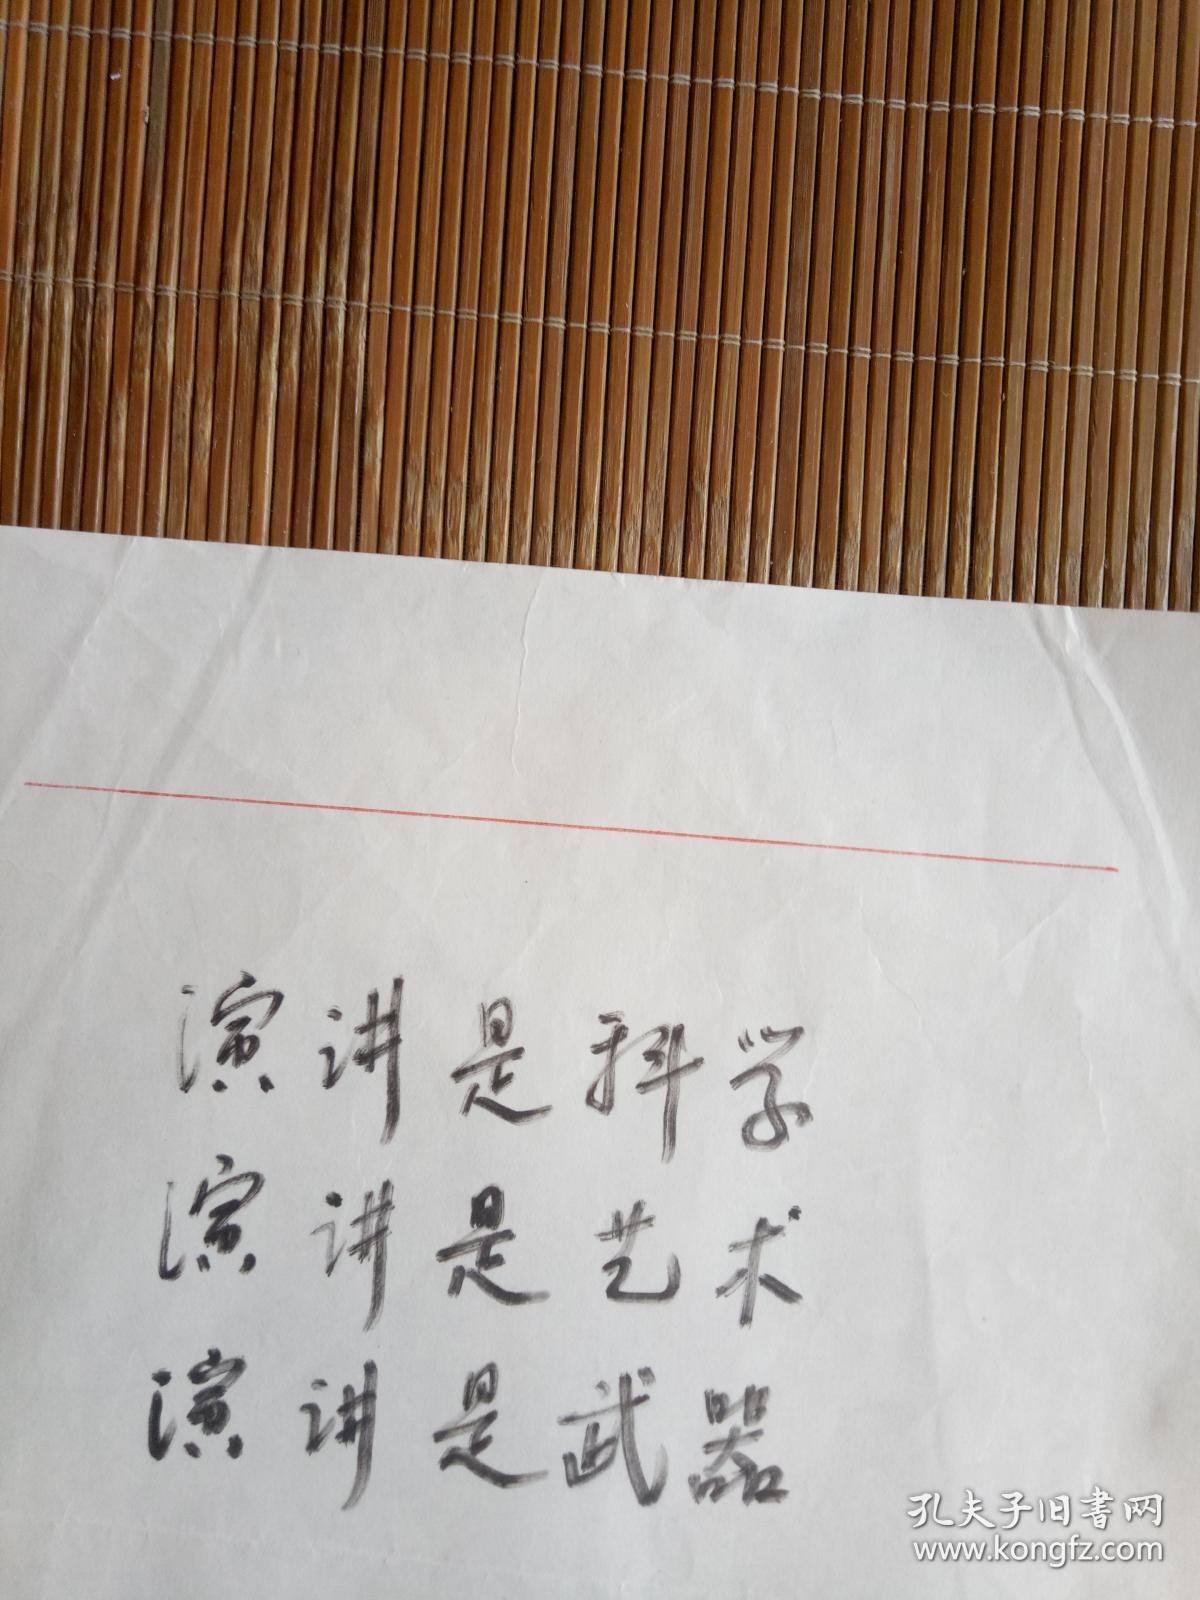 演讲是科学
演讲是艺术
演讲是武器
孔夫子旧书网
www.kongfz.com